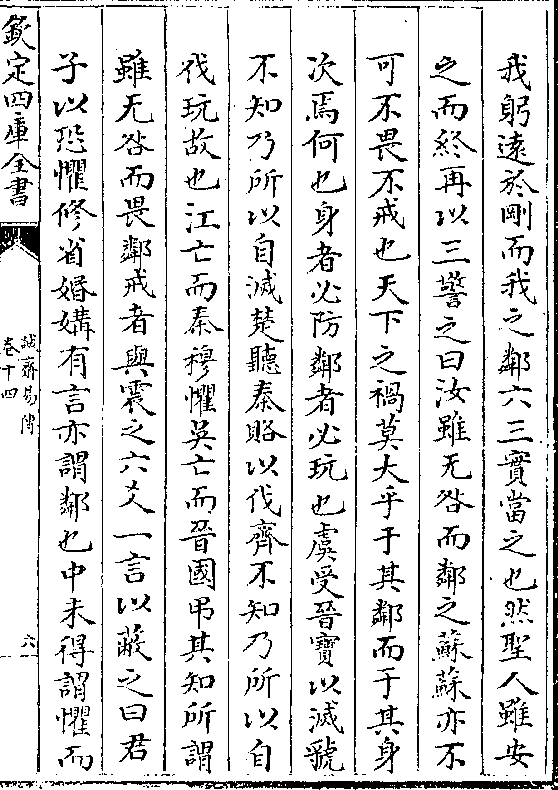 我躬逺於剛而我之鄰六三實當之也然聖人雖安
之而終再以三警之曰汝雖无咎而鄰之蘇蘇亦不
可不畏不戒也天下之禍莫大乎于其鄰而于其身
次焉何也身者必防鄰者必玩也虞受晉寳以滅虢
不知乃所以自滅楚聽秦賂以伐齊不知乃所以自
伐玩故也江亡而秦穆懼吳亡而晉國弔其知所謂
雖无咎而畏鄰戒者與震之六爻一言以蔽之曰君
子以恐懼修省婚媾有言亦謂鄰也中未得謂懼而
欽定四庫全書
誠齋易傳
卷十四
六